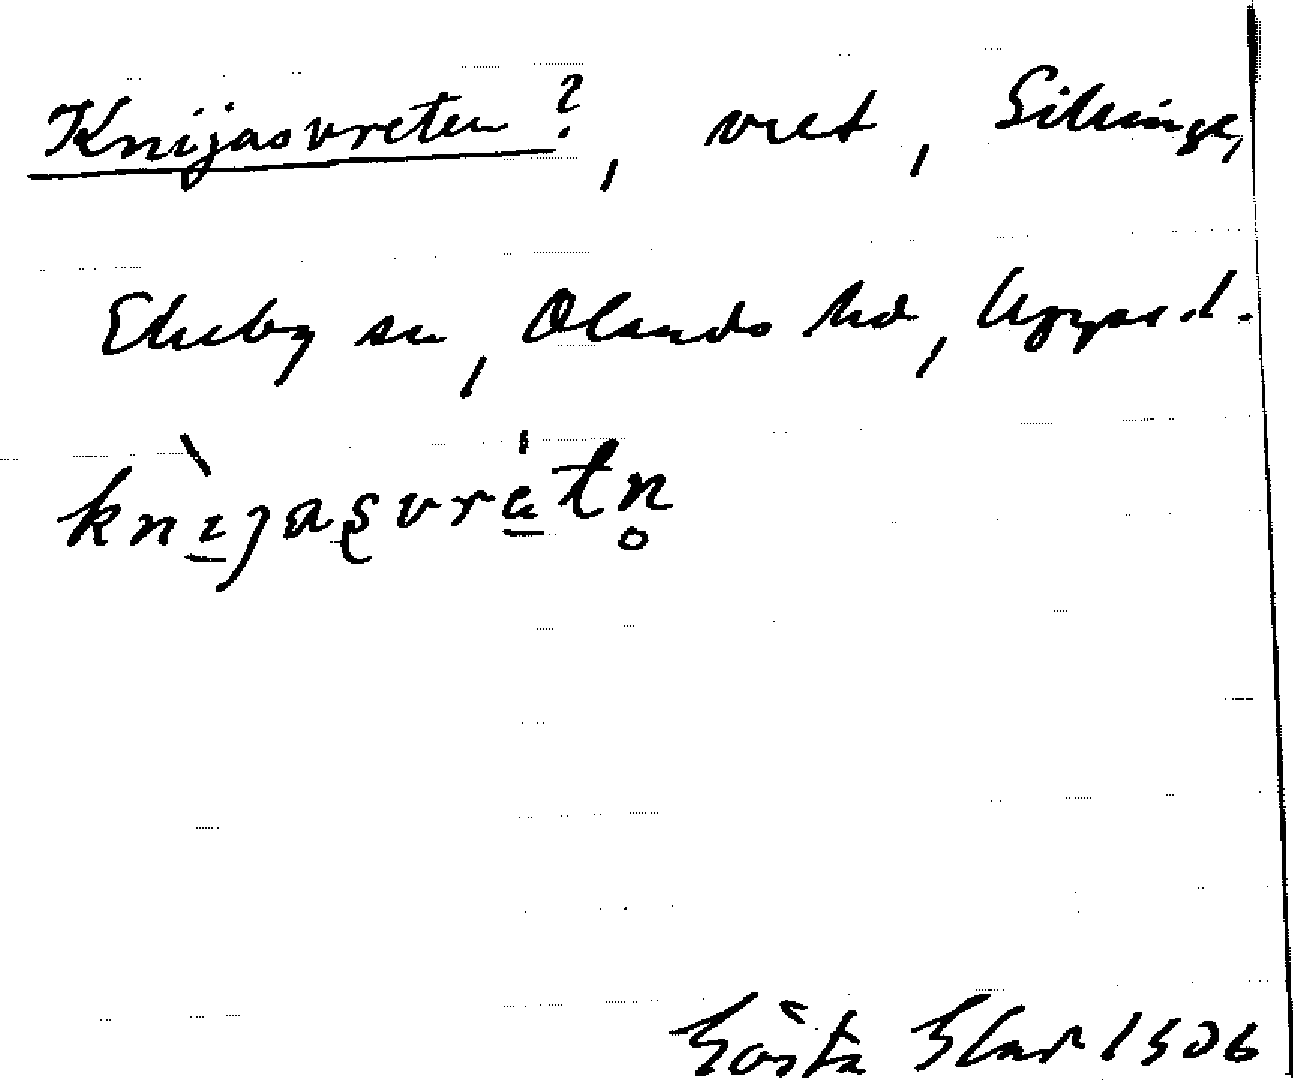 Knijasvreten?, vret, Sikinge,
Ekeby sn, Olands hd, Uppsa. l.
knijasvretn
Gösta 1906